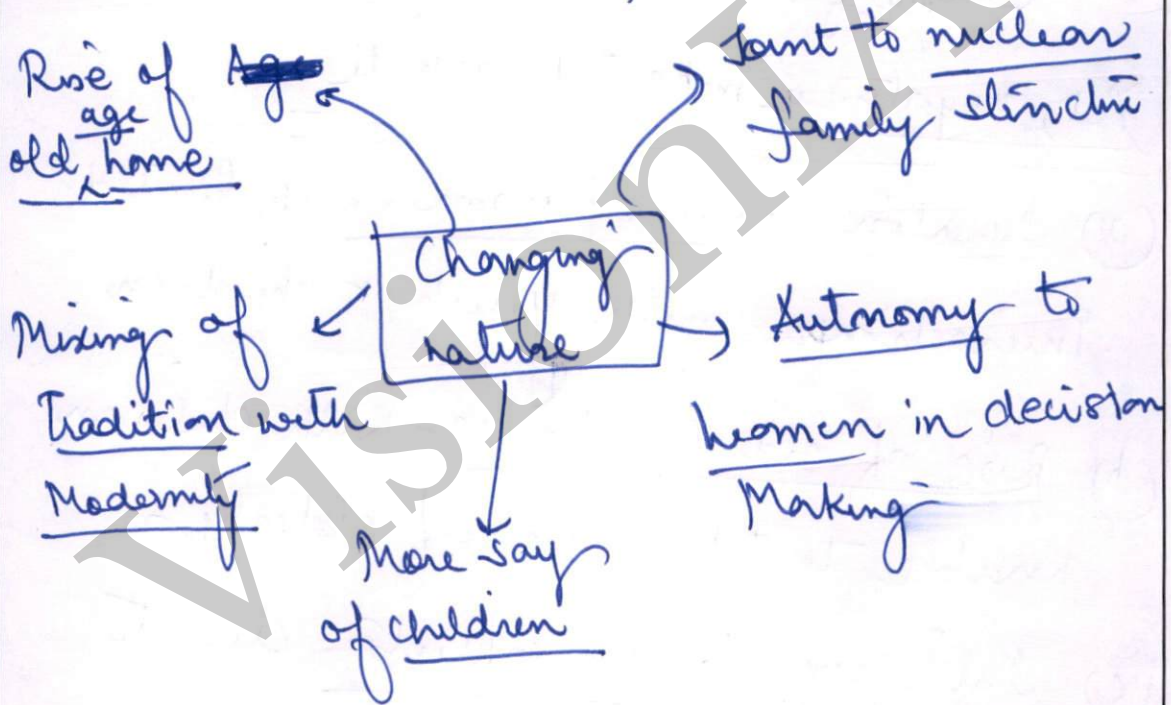 Rise of
old age home
Joint to nuclear
family structure
Changing
nature
Mixing of
Tradition with
Modernity
Autonomy to
women in decision
Making
More say
of children
VisionIA